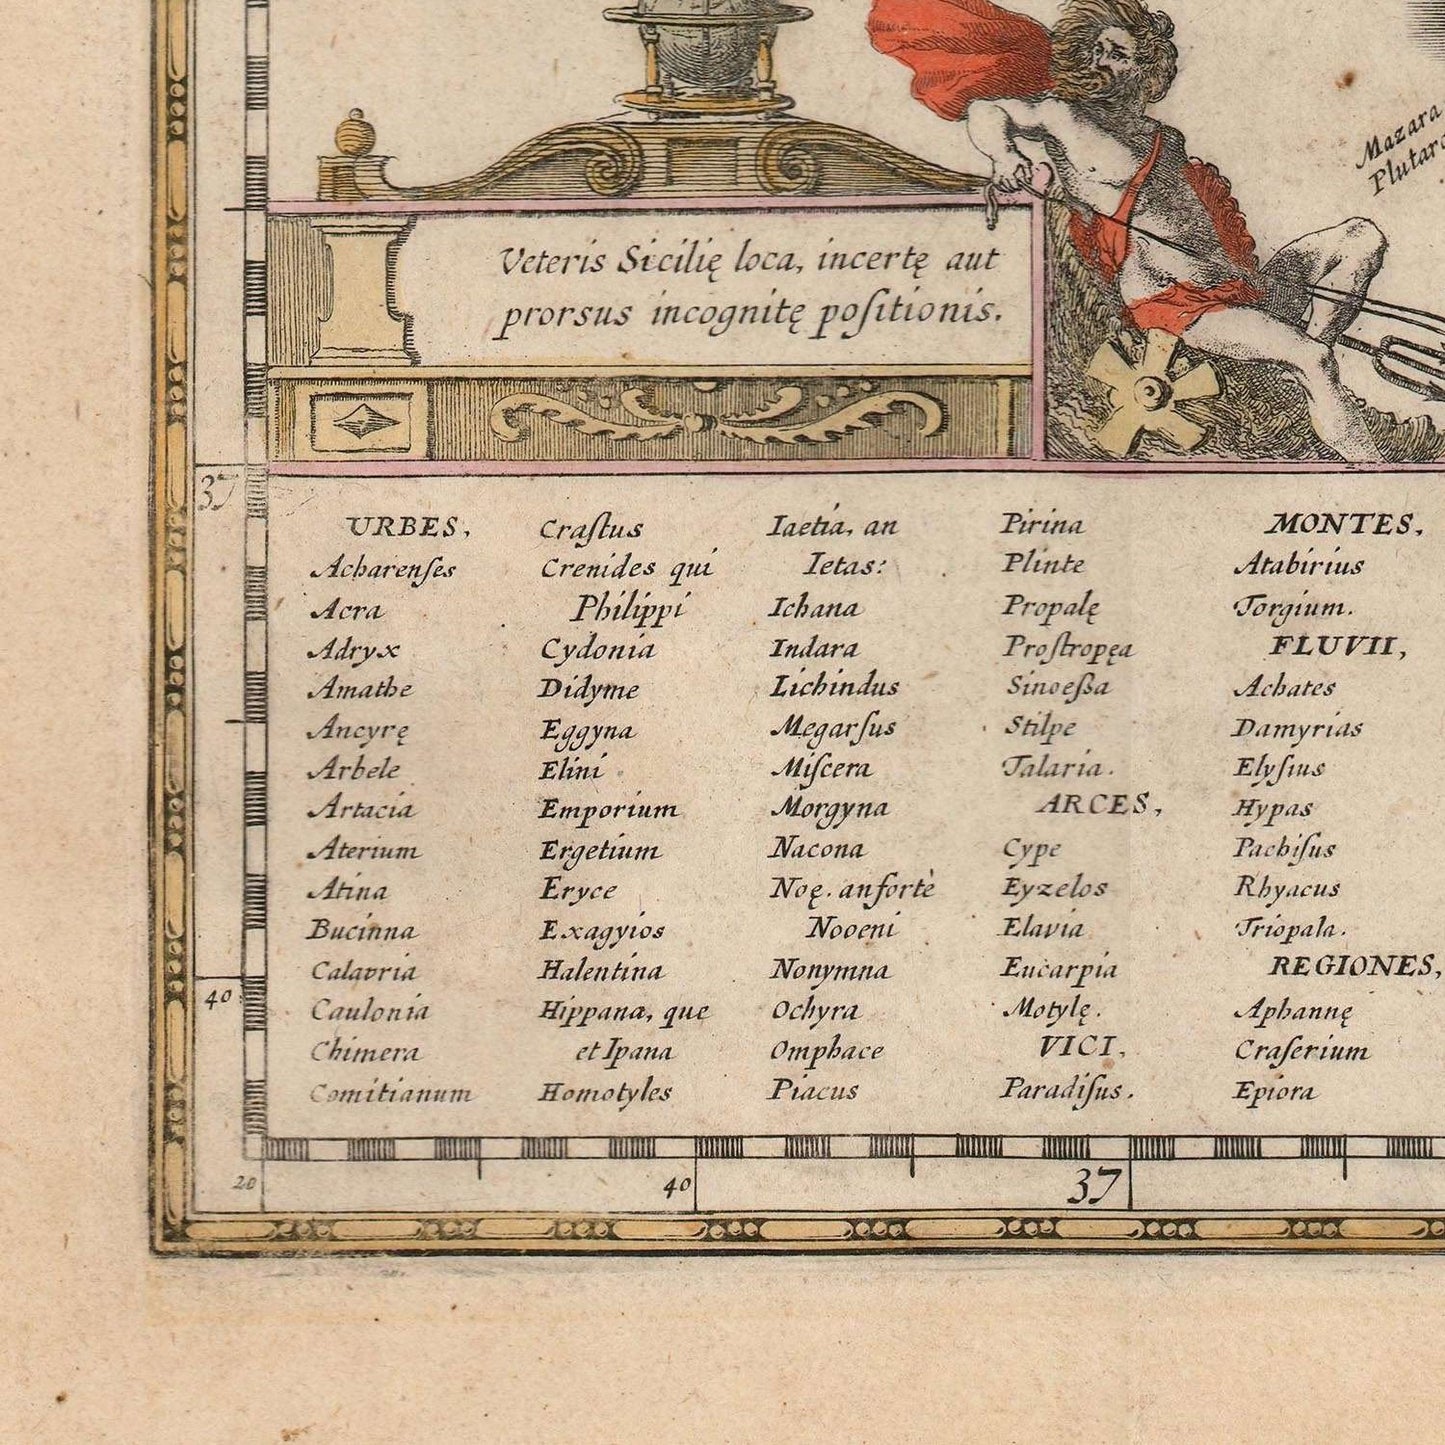 Mazara
Veteris Sicilię loca, incertę aut
prorsus incognitę poſitionis.
37
40
URBES,
Acharenſes
Acra
Adryx
Amathe
Ancyrę
Arbele
Artacia
Aterium
Atina
Bucinna
Calavria
Caulonia
Chimera
Comitianum
Craſtus
Crenides qui
Philippi
Cydonia
Didyme
Eggyna
Elini
Emporium
Ergetium
Eryce
Exagyios
Halentina
Hippana, que
et Ipana
Homotyles
Iaetia, an
Ietas:
Ichana
Indara
Lichindus
Megarſus
Miſcera
Morgyna
Nacona
Noę. anfortè
Nooeni
Nonymna
Ochyra
Omphace
Piacus
Pirina
Plinte
Propalę
Proſtropęa
Sinoeſsa
Stilpe
Talaria.
ARCES,
Cype
Eyzelos
Elavia
Eucarpia
Motylę.
VICI,
Paradiſus.
MONTES,
Atabirius
Torgium.
FLUVII,
Achates
Damyrias
Elyſius
Hypas
Pachiſus
Rhyacus
Triopala.
REGIONES,
Aphannę
Craſerium
Epiora
20
40
37